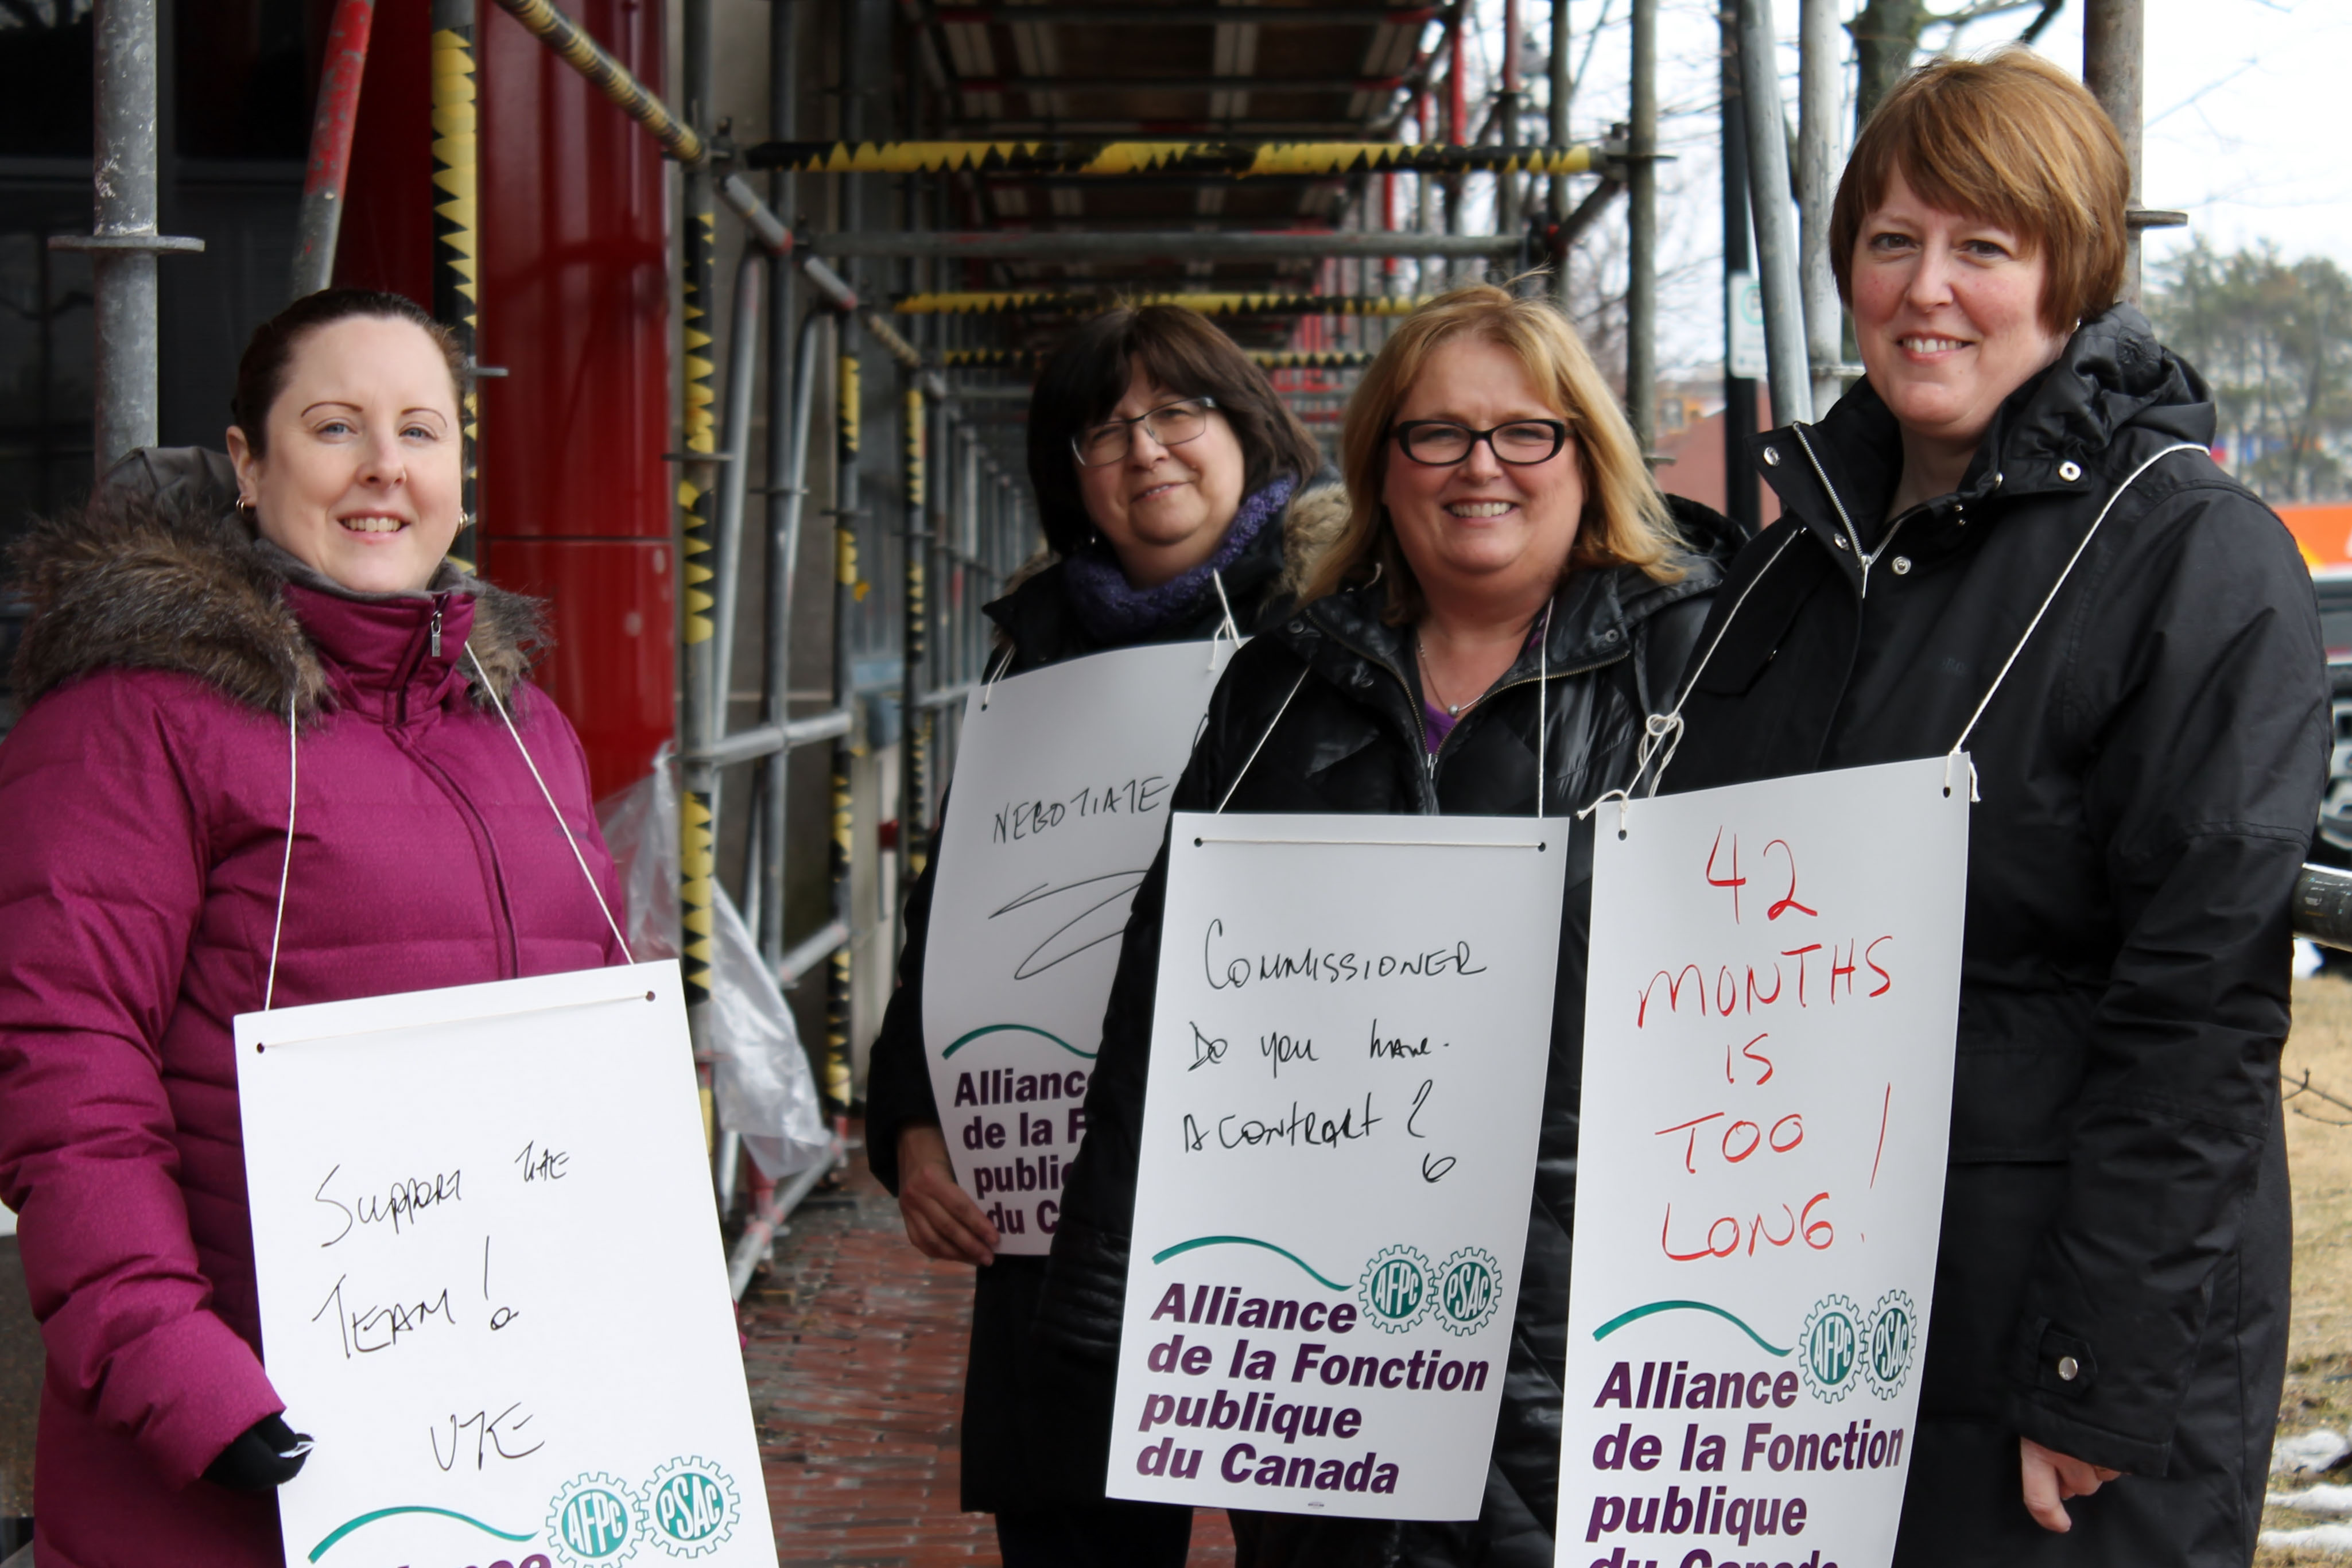 SUPPORT THE
TEAM!
UTE
AFPC PSAC
NEGOTIATE
Alliance
de la F
public
du C
COMMISSIONER
DO YOU HAVE
A CONTRACT?
AFPC PSAC
Alliance
de la Fonction
publique
du Canada
42
MONTHS
IS
TOO
LONG!
AFPC PSAC
Alliance
de la Fonction
publique
du Canada